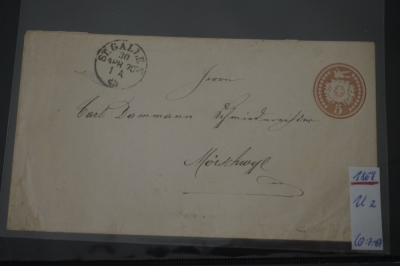 ST. GALLEN
30
APR 70
1 A
5
Herrn
Carl Dammann Schmiedmeister
Mörschwyl
1867
U 2